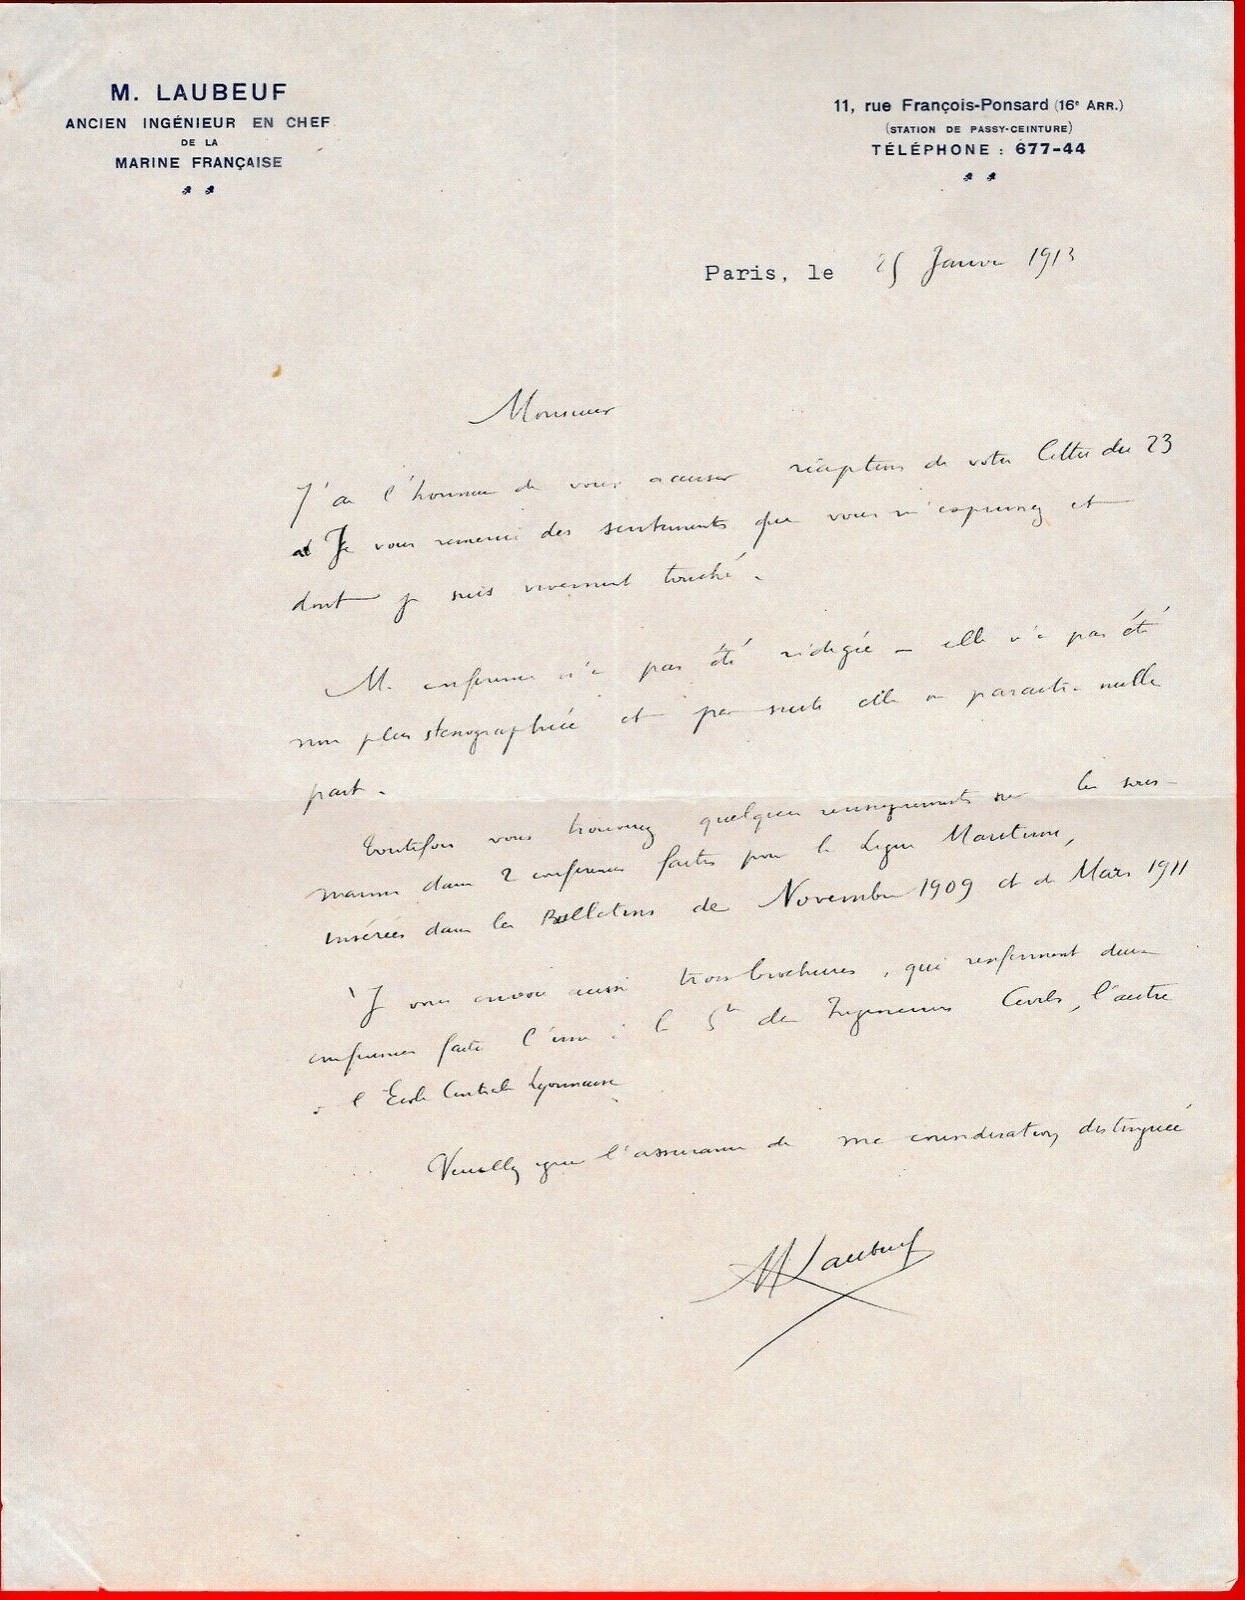 M. LAUBEUF
ANCIEN INGÉNIEUR EN CHEF
DE LA
MARINE FRANÇAISE
11, rue François-Ponsard (16e ARR.)
(STATION DE PASSY-CEINTURE)
TÉLÉPHONE : 677-44
Paris, le 25 Janvier 1913
Monsieur
J'ai l'honneur de vous accuser réception de votre lettre du 23
et Je vous remercie des sentiments que vous m'exprimez et
dont je suis vivement touché.
Ma conférence n'a pas été rédigée – elle n'a pas été
non plus stenographiée et par suite elle n'a paru nulle
part.
Toutefois vous trouverez quelques renseignements sur les sous-
marins dans 2 conférences faites pour la Ligue Maritime,
insérées dans les Bulletins de Novembre 1909 et de Mars 1911
Je vous envoie aussi trois brochures, qui renferment deux
conférences faites l'une à la Sté des Ingénieurs Civils, l'autre
à l'Ecole Centrale Lyonnaise
Veuillez agréer l'assurance de ma considération distinguée
M Laubeuf